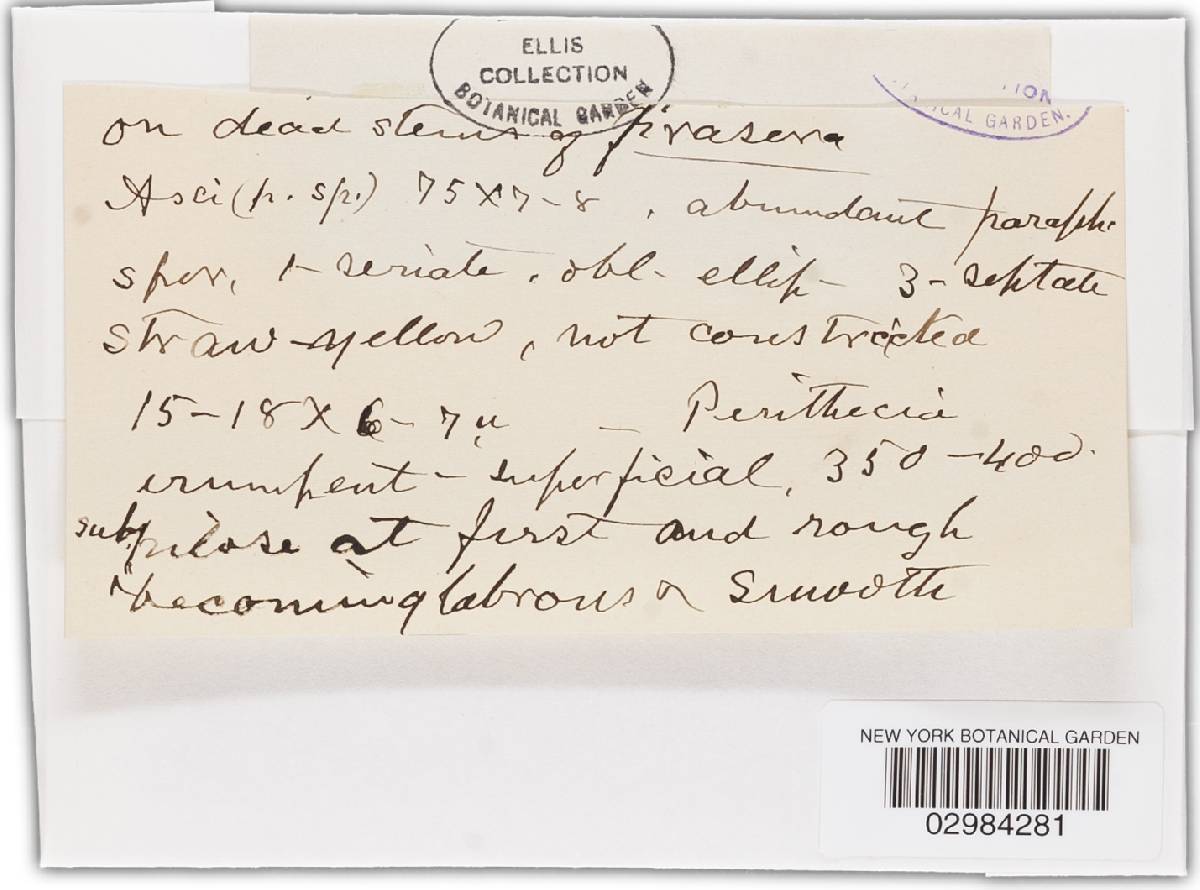 ELLIS
COLLECTION
BOTANICAL GARDEN
TION
ICAL GARDEN.
on dead stems of Frasera
Asci (p. sp.) 75 x 7-8, abundant paraph.
spor, 1-seriate, obl- ellip- 3-septate
straw-yellow, not constricted
15-18 X 6-7 u — Perithecia
erumpent-superficial, 350-400.
sub pilose at first and rough
becoming glabrous & smooth
NEW YORK BOTANICAL GARDEN
02984281